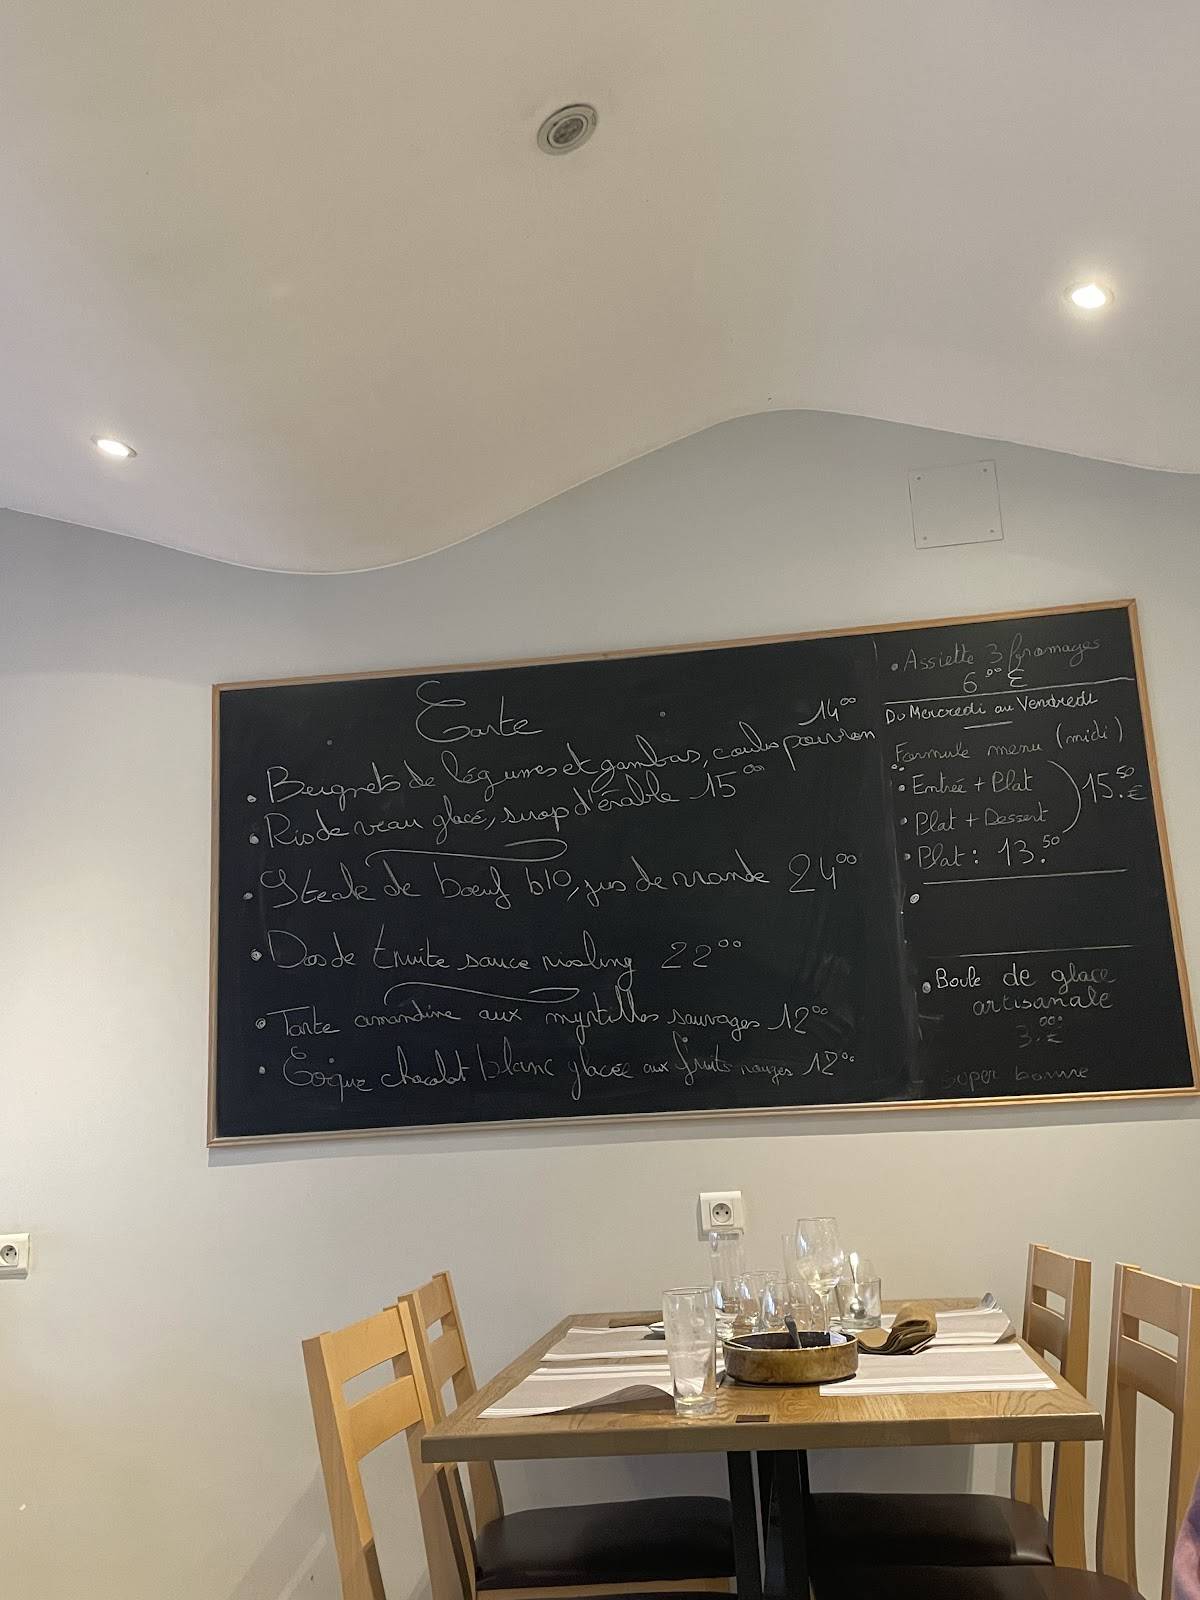 Carte
14°°
• Beignets de légumes et gambas, coulis poivron
• Ris de veau glacé, sirop d'érable 15°°
• Steak de boeuf bio, jus de viande 24°°
• Dos de truite sauce riesling 22°°
• Tarte amandine aux myrtilles sauvages 12°°
• Coque chocolat blanc glacée aux fruits rouges 12°°
• Assiette 3 fromages
6.°° €
Du Mercredi au Vendredi
Formule menu (midi)
• Entrée + Plat
15.50 €
• Plat + Dessert
• Plat : 13.50
• Boule de glace
artisanale
3.°° €
super bonne